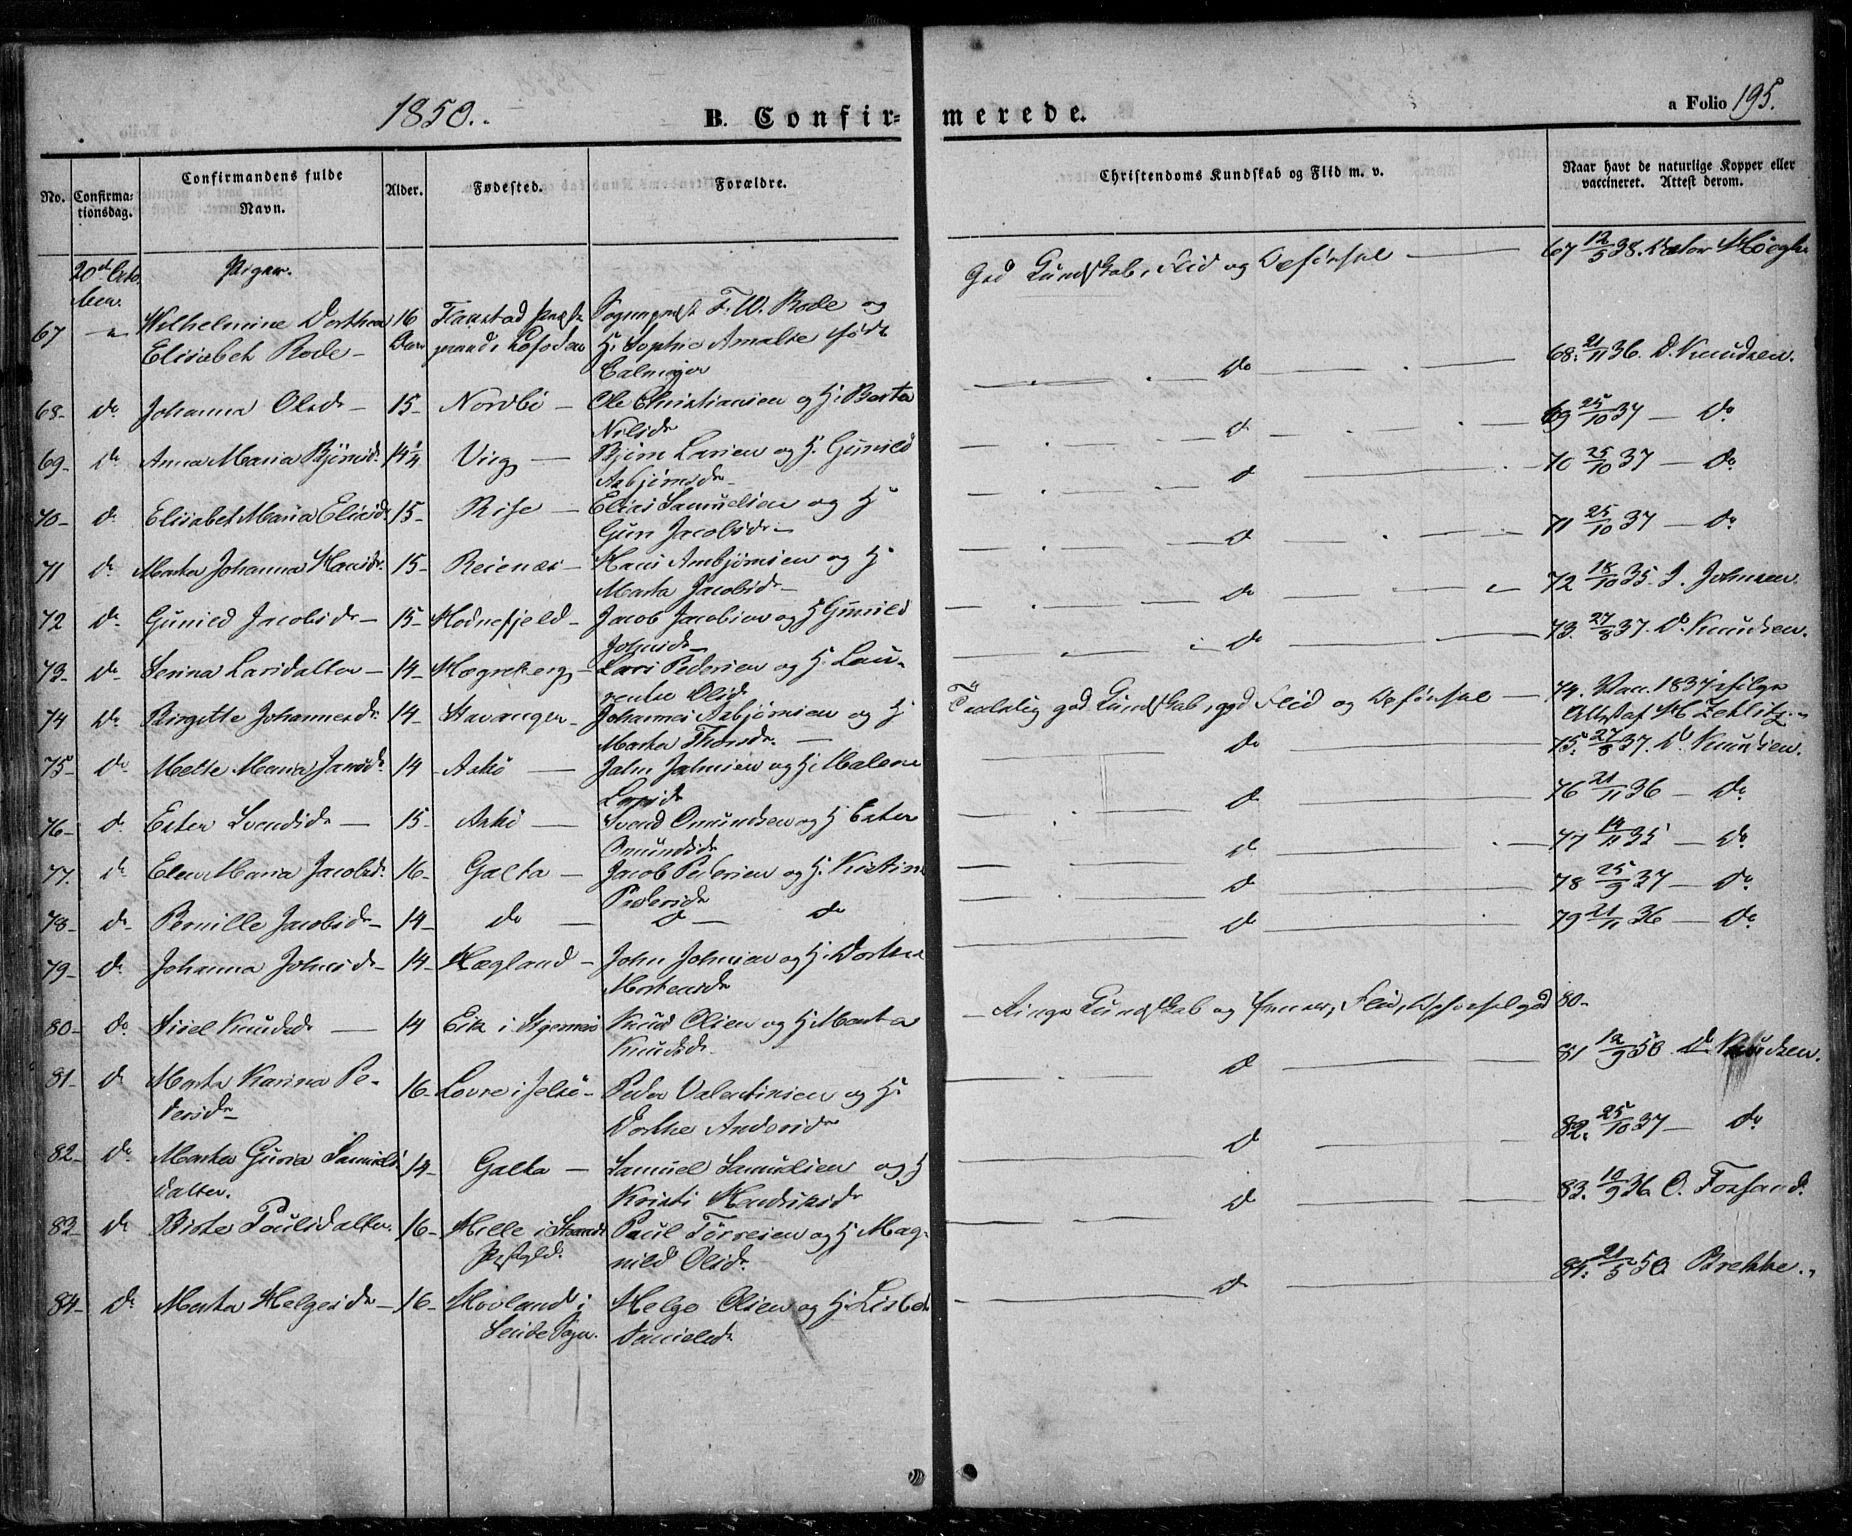 1850.
B. Confirmerede.
a Folio 195.
No.
Confirma-
tionsdag.
Confirmandens fulde
Navn.
Alder.
Fødested.
Forældre.
Christendoms Kundskab og Flid m. v.
Naar havt de naturlige Kopper eller
vaccineret. Attest derom.
20de Octo
ber.
Piger.
67 Wilhelmine Dorthea 16 Flakstad Præste Sognepræst F. W. Rode og
Elisabet Rode - Aar Lofoden H: Sophie Amalie født
Calmejer
God Kundskab, Flid og Opførsel
67 12/5 38. Doctor Høegh
68- Do Johanna Olsdr - 15- Nordbö - Ole Christiansen og H: Berta
Nilsdr
Do
68. 21/11 36. D. Knudsen.
69- Do Anna Maria Björnsdr 14 1/4 Virg - Björn Larsen og H: Gunild
Asbjörnsdr
Do
69 25/10 37 - Do
70- Do Elisabet Maria Eliasdr 15- Rise - Elias Samuelsen og H
Guri Jacobsdr -
Do
70 25/10 37 - Do
71 Do Marta Johanna Hansdr 15- Reienæs - Hans Ambjörnsen og H
Marta Jacobsdr -
Do
71 25/10 37 - Do
72 Do Gunild Jacobsdr - 15- Hodnefjeld - Jacob Jacobsen og H Gunild
Johnsdr -
Do
72 18/10 35. J. Johnsen.
73- Do Serina Larsdatter - 14- Hægreberg - Lars Pedersen og H: Lau-
rentse Olsdr
Do
73. 27/8 37. D. Knudsen.
74 Do Birgitte Johannesdr 14- Stavanger - Johannes Asbjörnsen og H
Marta Thorsdr -
Taalelig god Kundskab, god Flid og Opførsel
74. Vacc. 1837 ifølge
Attest af H Zetlitz
75- Do Mette Maria Jansdr 14 - Askö - John Johnsen og H: Malene
Larsdr
Do
75. 27/8 37. D. Knudsen.
76- Do Ester Svendsdr - 15- Askö - Svend Omundsen og H Ester
Omundsdr
Do
76 21/11 36 - Do
77. Do Elen Maria Jacobsdr 16- Galta - Jacob Pedersen og H. Kristine
Pedersdr
Do
77 14/11 35 - Do
78- Do Pernille Jacobsdr - 14 - do - Do - Do
Do
78 25/9 37 - Do
79- Do Johanna Johnsdr - 14- Hægland - John Johnsen og H: Dorthea
Mortensdr
Do
79 21/11 36 - Do
80- Do Sisel Knudsdr - 14 Eik i Knud Olsen og H Marta
Knudsdr.
Ringe Kundskab og Flid, Opførsel god
80-
81- Do Marta Karina Pe- 16- Lovre i Jelsö - Peder Valentinsen og H:
dersdr - Dorthe Andersdr
Do
81 12/9 50 D Knudsen.
82- Do Marta Guria Samuels 14- Galta - Samuel Samuelsen og H
datter. Kristi Hendriksdr
Do
82. 25/10 37 - Do
83- Do Birte Poulsdatter 16- Helle i Strands Paul Torresen og H Mag-
Præstgld. nild Olsdr.
Do
83. 10/9 36 O. Forsand.
84- Do Marta Helgesdr - 16- Hovland i Helge Olsen og H: Lisbet
Sogn. Danielsdr
Do
84. 21/5 50 Brekke.